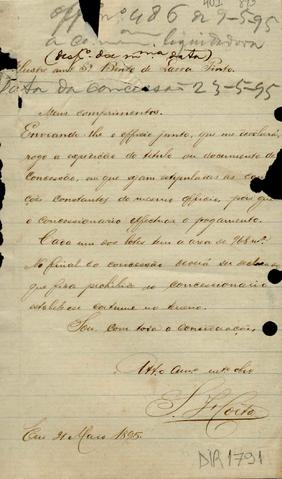 401 893
Off. nº 486 de 9-5-95
a commissão liquidadora
(desp. doc na mma data)
Illustre amº Sr. Bento de Lacea Pinto.
Data da concessão 23-5-95
Meus comprimentos.
Enviando-lhe o officio junto, que me devolverá,
rogo a expedição do titulo ou documento de
Concessão, no que sejam estipuladas as condi-
ções constantes do mesmo officio, para que
o concessionario effectue o pagamento.
Cada um dos lotes tem a area de 968 m².
No final da concessão deverá ser declarado
que fica prohibido ao concessionario
estabelecer cortume no terreno.
Sou, com toda a consideração
Attº Amº
Em 21 Maio 1895.
DIR 1791